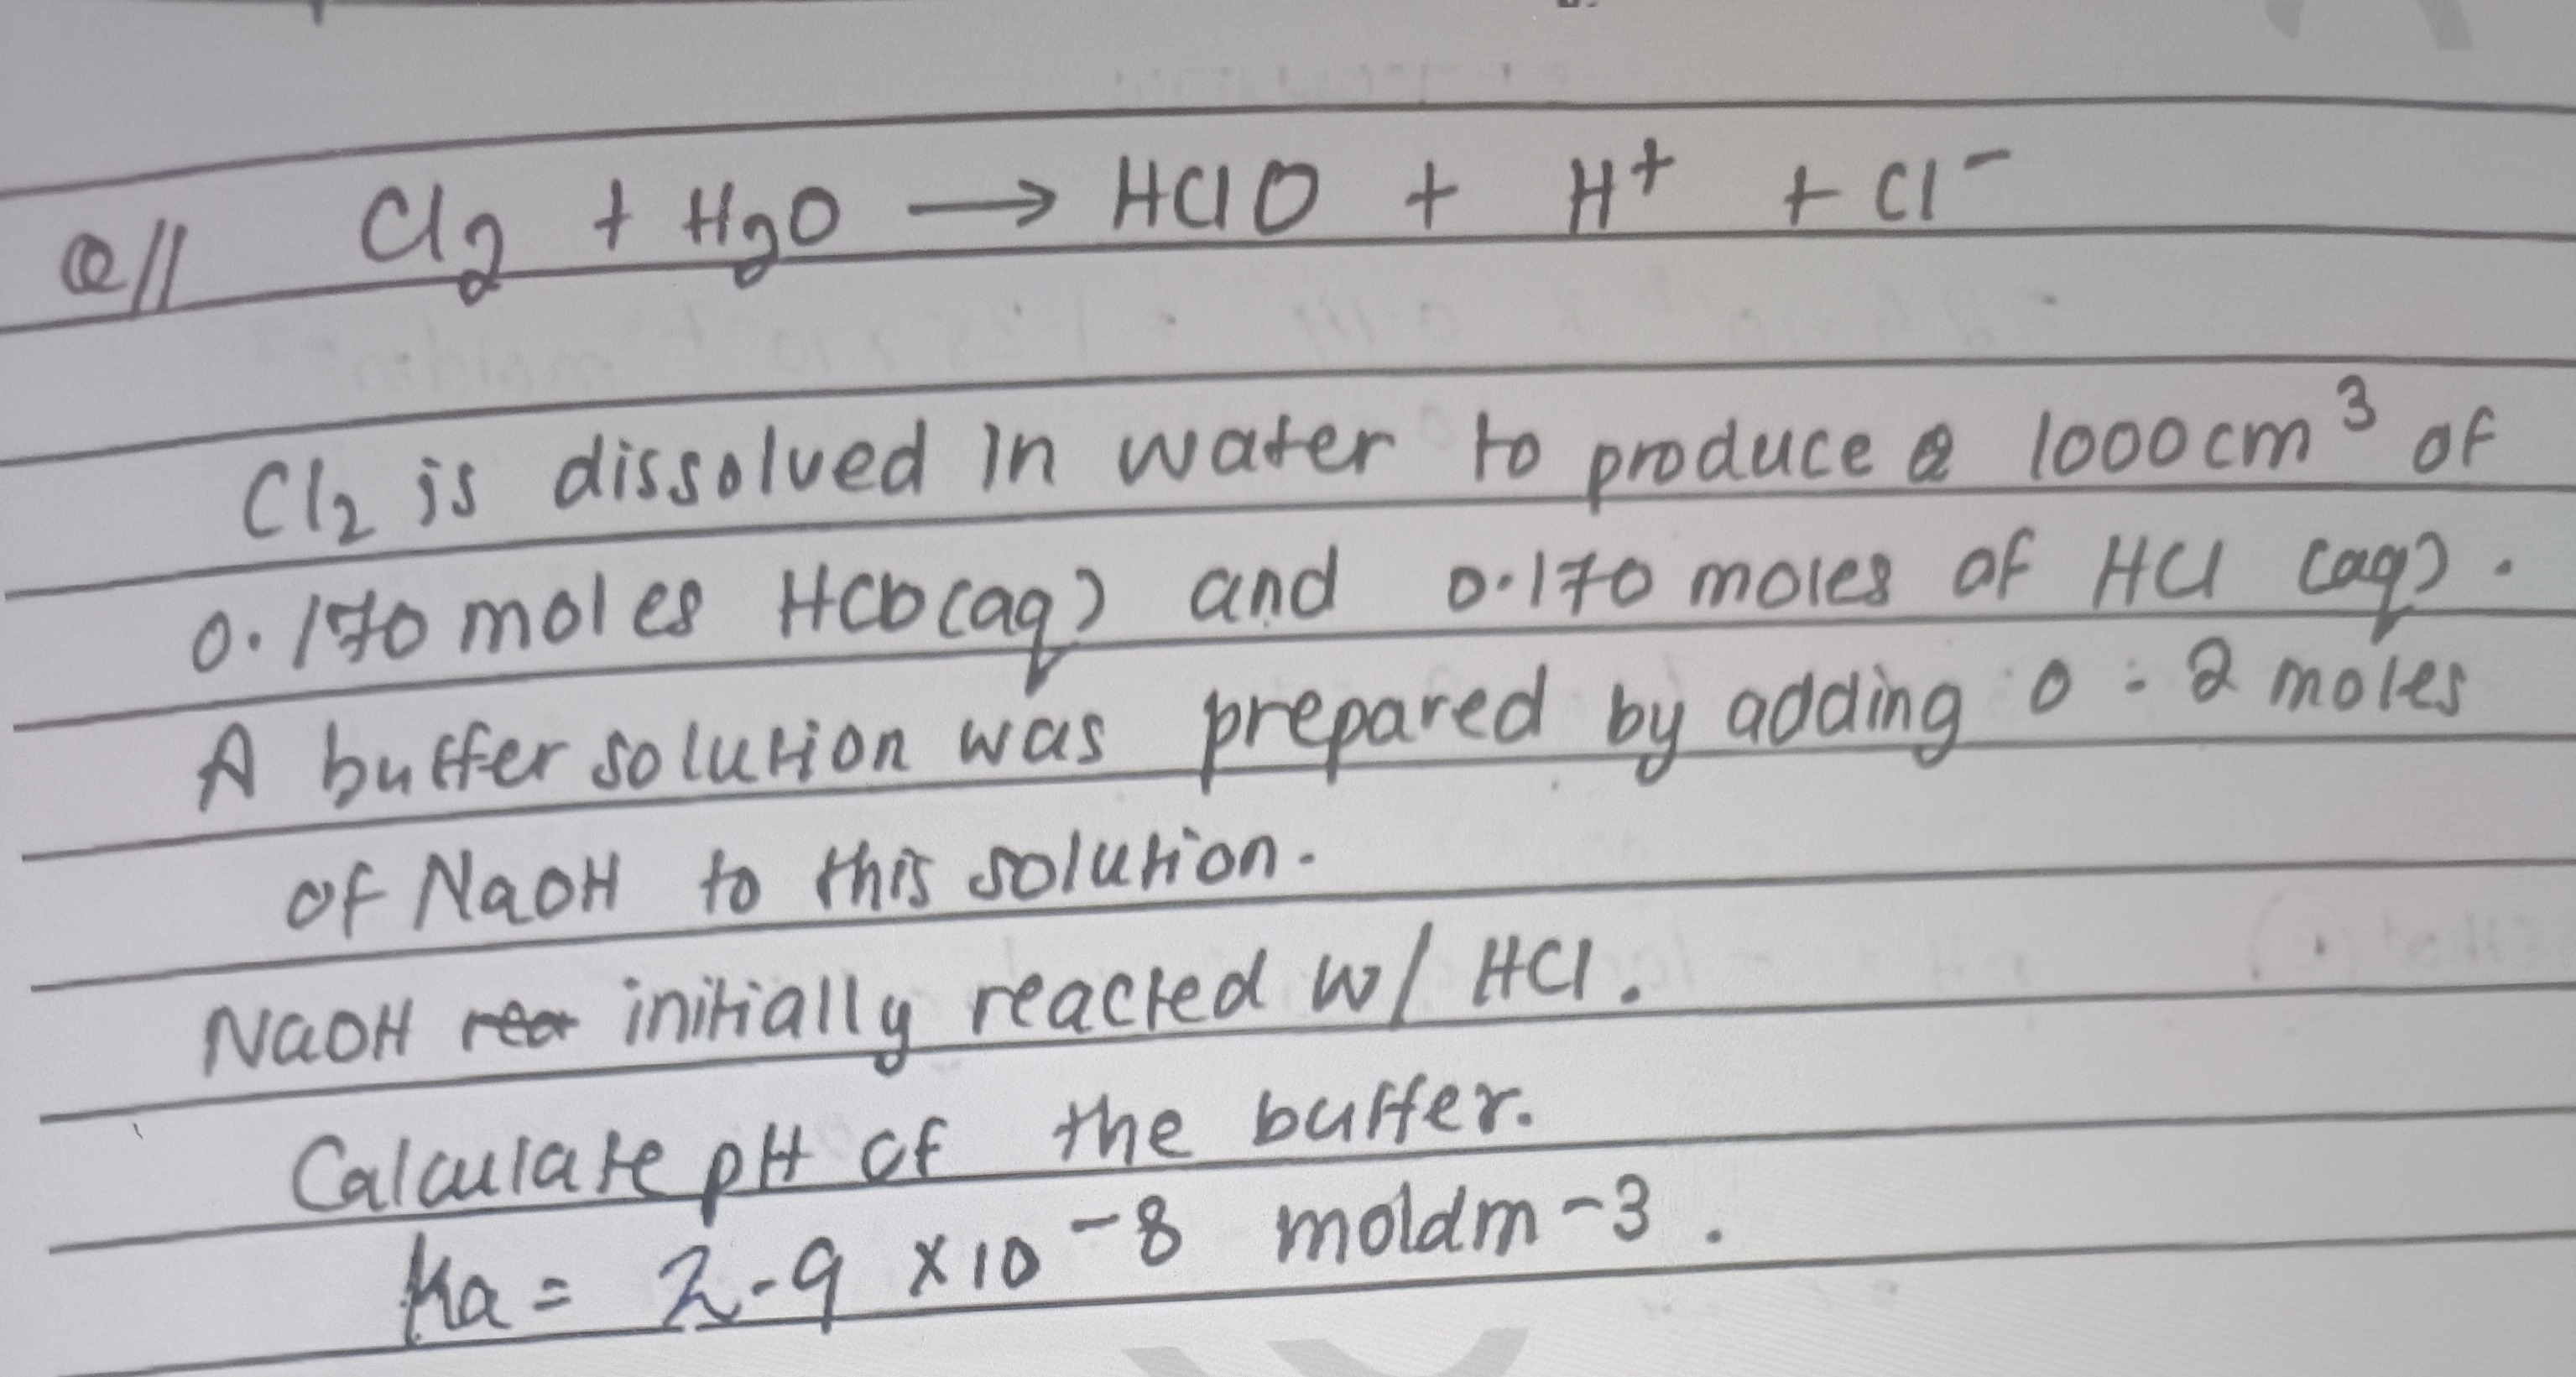 Q// Cl2 + H2O → HClO + H+ + Cl-
Cl2 is dissolved in water to produce 1000cm3 of
0.170 moles HClO(aq) and 0.170 moles of HCl (aq).
A buffer solution was prepared by adding 0.2 moles
of NaOH to this solution.
NaOH initially reacted w/ HCl.
Calculate pH of the buffer.
Ka = 2.9 × 10 -8 moldm-3.